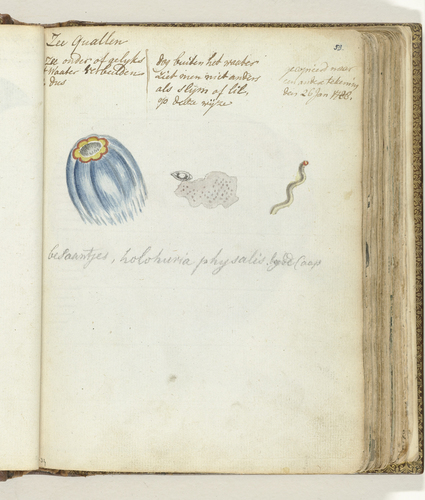 Zee Quallen
Zee onder of gelyks
Waater verbeelden
dus
dog buiten het waater
ziet men niet anders
als slijm of lil
op deeze wijze
33.
gecopieerd naar
een ander tekening
den 26 Jan 1786.
besaantjes, holothuria physalis. by de Caap